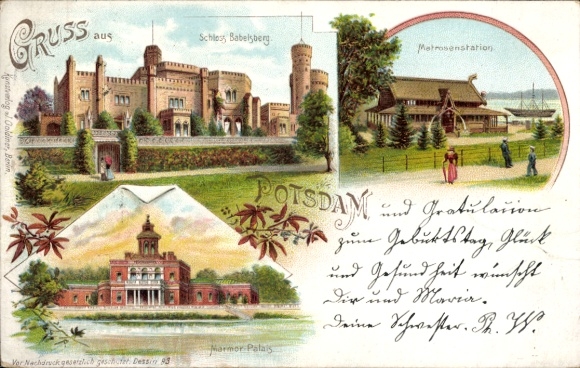 Gruss aus
Schloss Babelsberg.
Matrosenstation.
Kunstverlag
Berlin.
POTSDAM
und Gratulation
zum Geburtstag, Glück
und Gesundheit wünscht
Dir und Maria.
Deine Schwester.
Marmor-Palais
Vor Nachdruck gesetzlich geschützt. Dessin 93